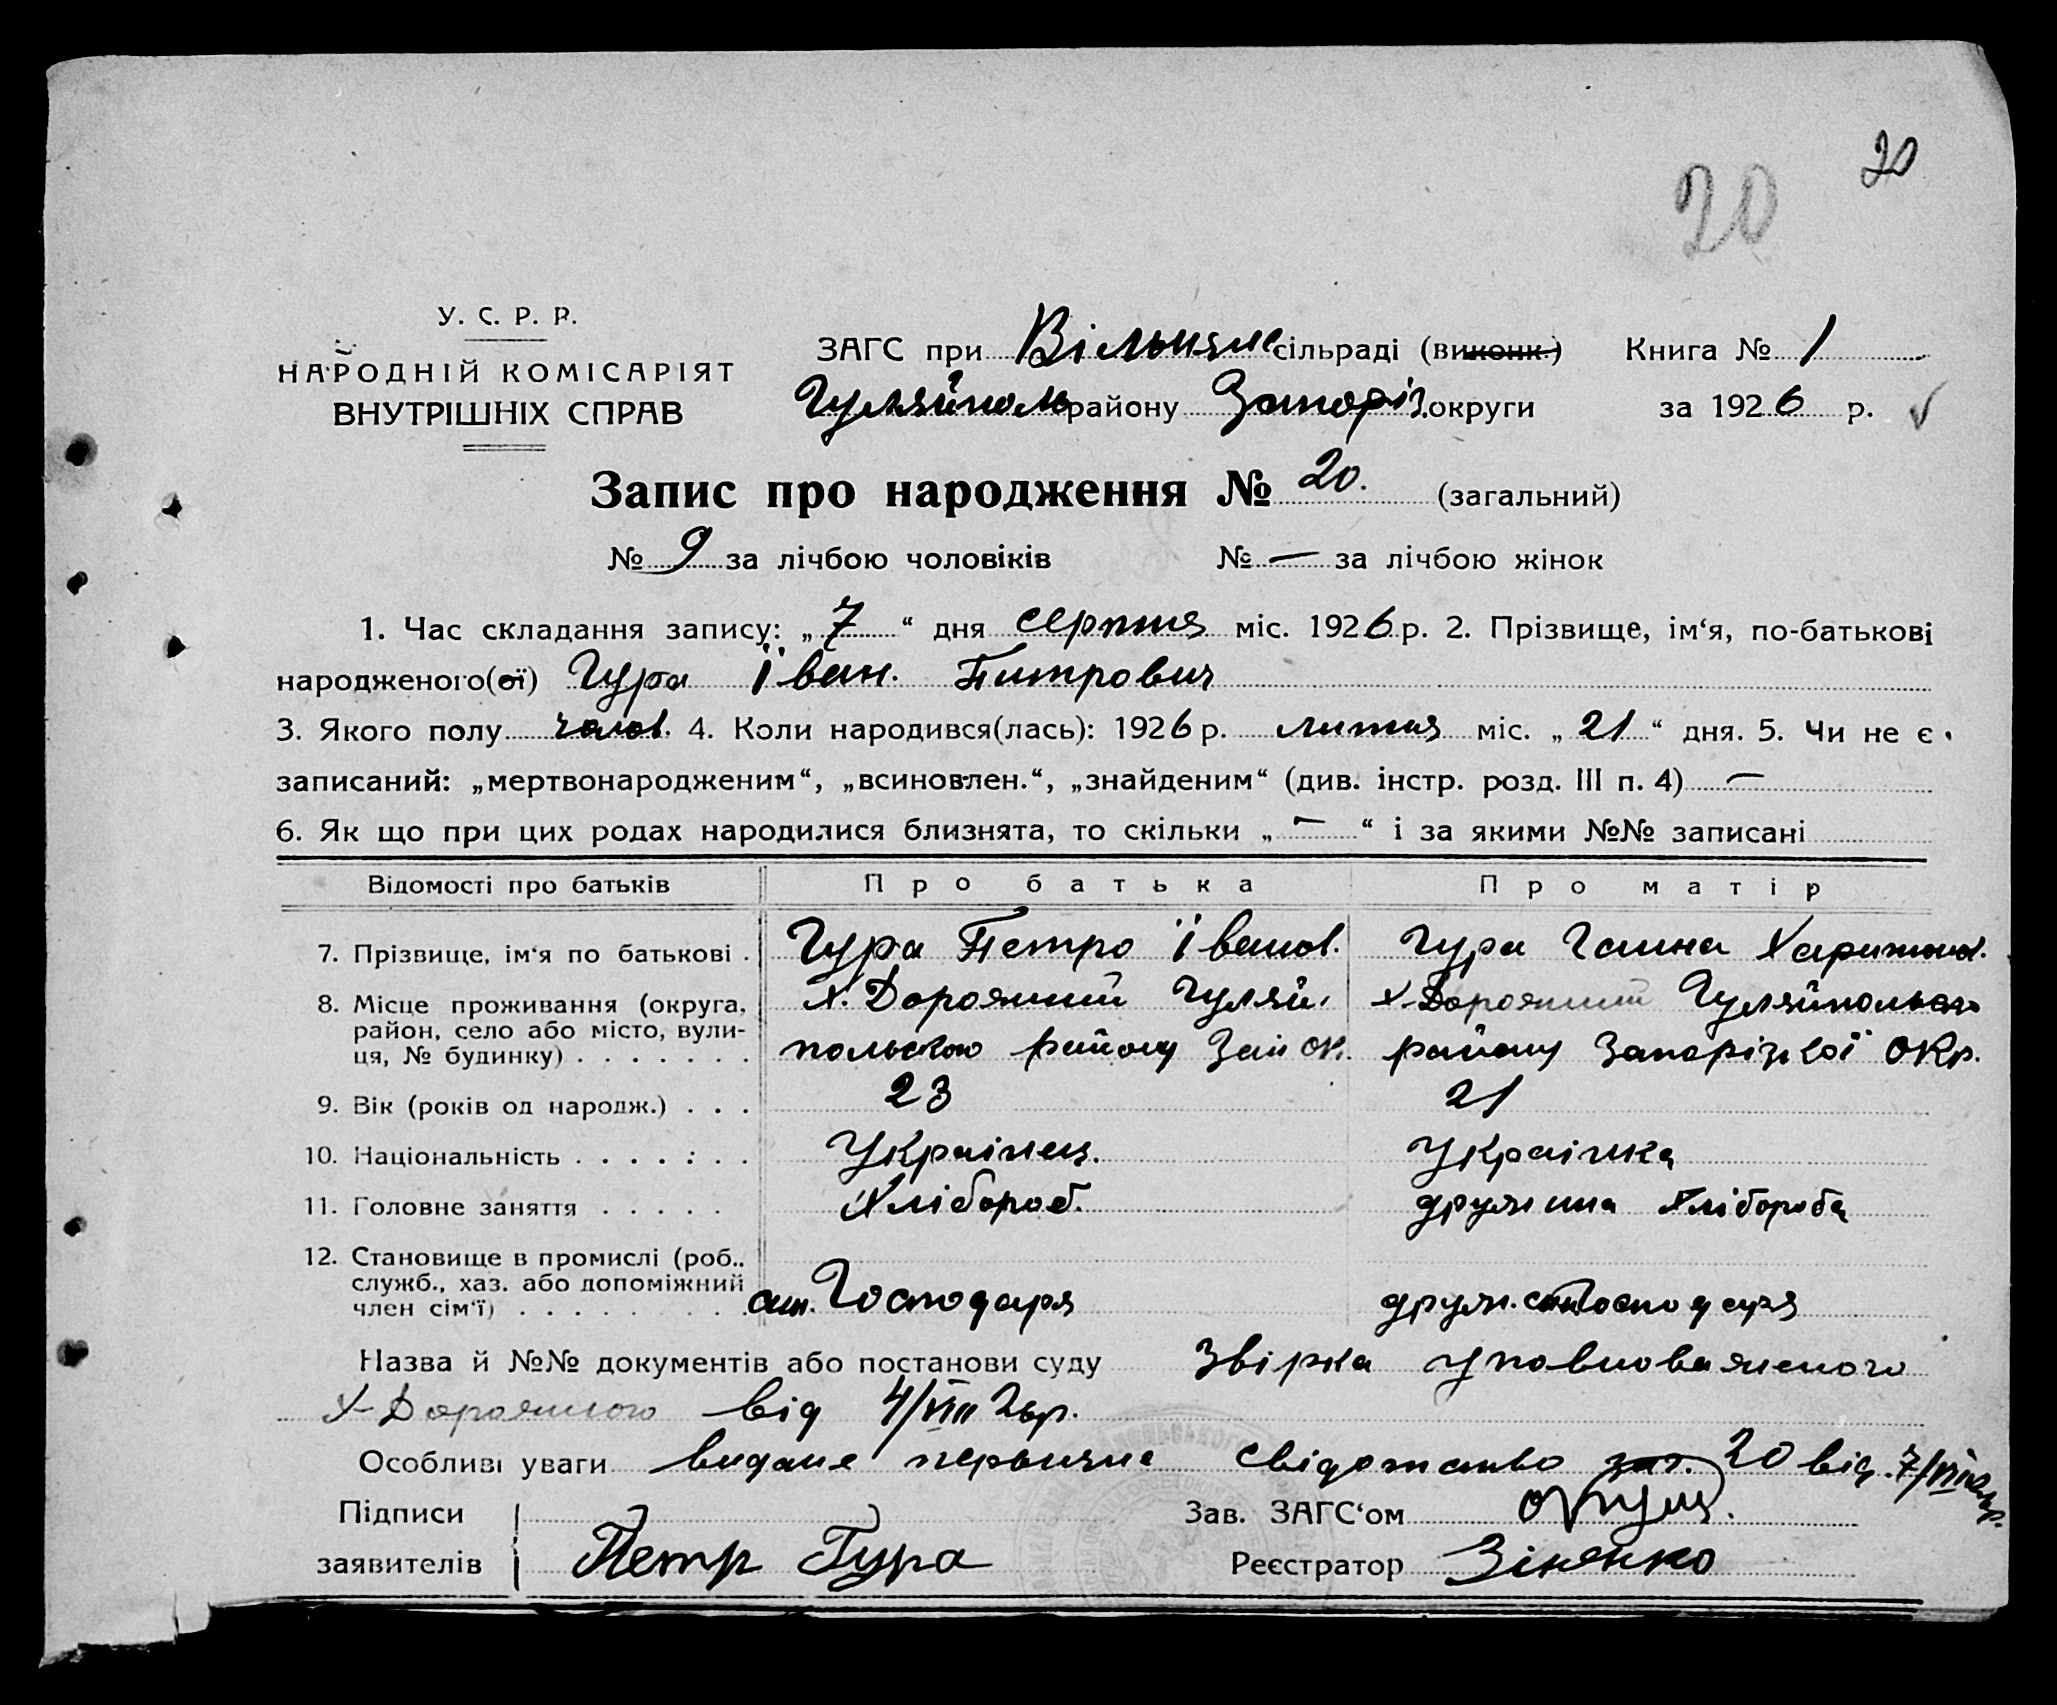 20
20
У. С. Р. Р.
НАРОДНІЙ КОМІСАРІЯТ
ВНУТРІШНІХ СПРАВ
ЗАГС при сільраді (виконк.) Книга № 1
Гуляйполь району Запоріз. округи за 1926 р.
Запис про народження № 20. (загальний)
№ 9 за лічбою чоловіків № — за лічбою жінок
1. Час складання запису: „ 7 “ дня серпня міс. 1926 р. 2. Прізвище, ім‘я, по-батькові
народженого(ої) Гура Іван. Питрович
3. Якого полу чолов. 4. Коли народився(лась): 1926 р. липня міс. „ 21 “ дня. 5. Чи не є
записаний: „мертвонародженим“, „всиновлен.“, „знайденим“ (див. інстр. розд. III п. 4) —
6. Як що при цих родах народилися близнята, то скільки „ — “ і за якими №№ записані
Відомості про батьків Про батька Про матір
7. Прізвище, ім‘я по батькові . Гура Петро Іванов. Гура Ганна
8. Місце проживання (округа, район, село або місто, вулиця, № будинку) . . . . . . . Х. Дорожний Гуляй- Х-Дорожний Гуляйпольсько
польського району Зап ок. району Запорізкої окр.
9. Вік (років од народж.) . . . 23 21
10. Національність . . . . : . . Украінец. Украінка
11. Головне заняття . . . . . Хлібороб. дружина Хлібороба
12. Становище в промислі (роб., служб., хаз. або допоміжний член сім‘ї) . . . . . . . . син. Господаря друж. син Господаря
Назва й №№ документів або постанови суду Звірка уповноваженого
Х-Дорожного від 4/VIII 26р.
Особливі уваги видане первичне свідотство 20 від. 7/VIII
Підписи
заявителів Петр Гура
Зав. ЗАГС‘ом
Реєстратор Зінянко